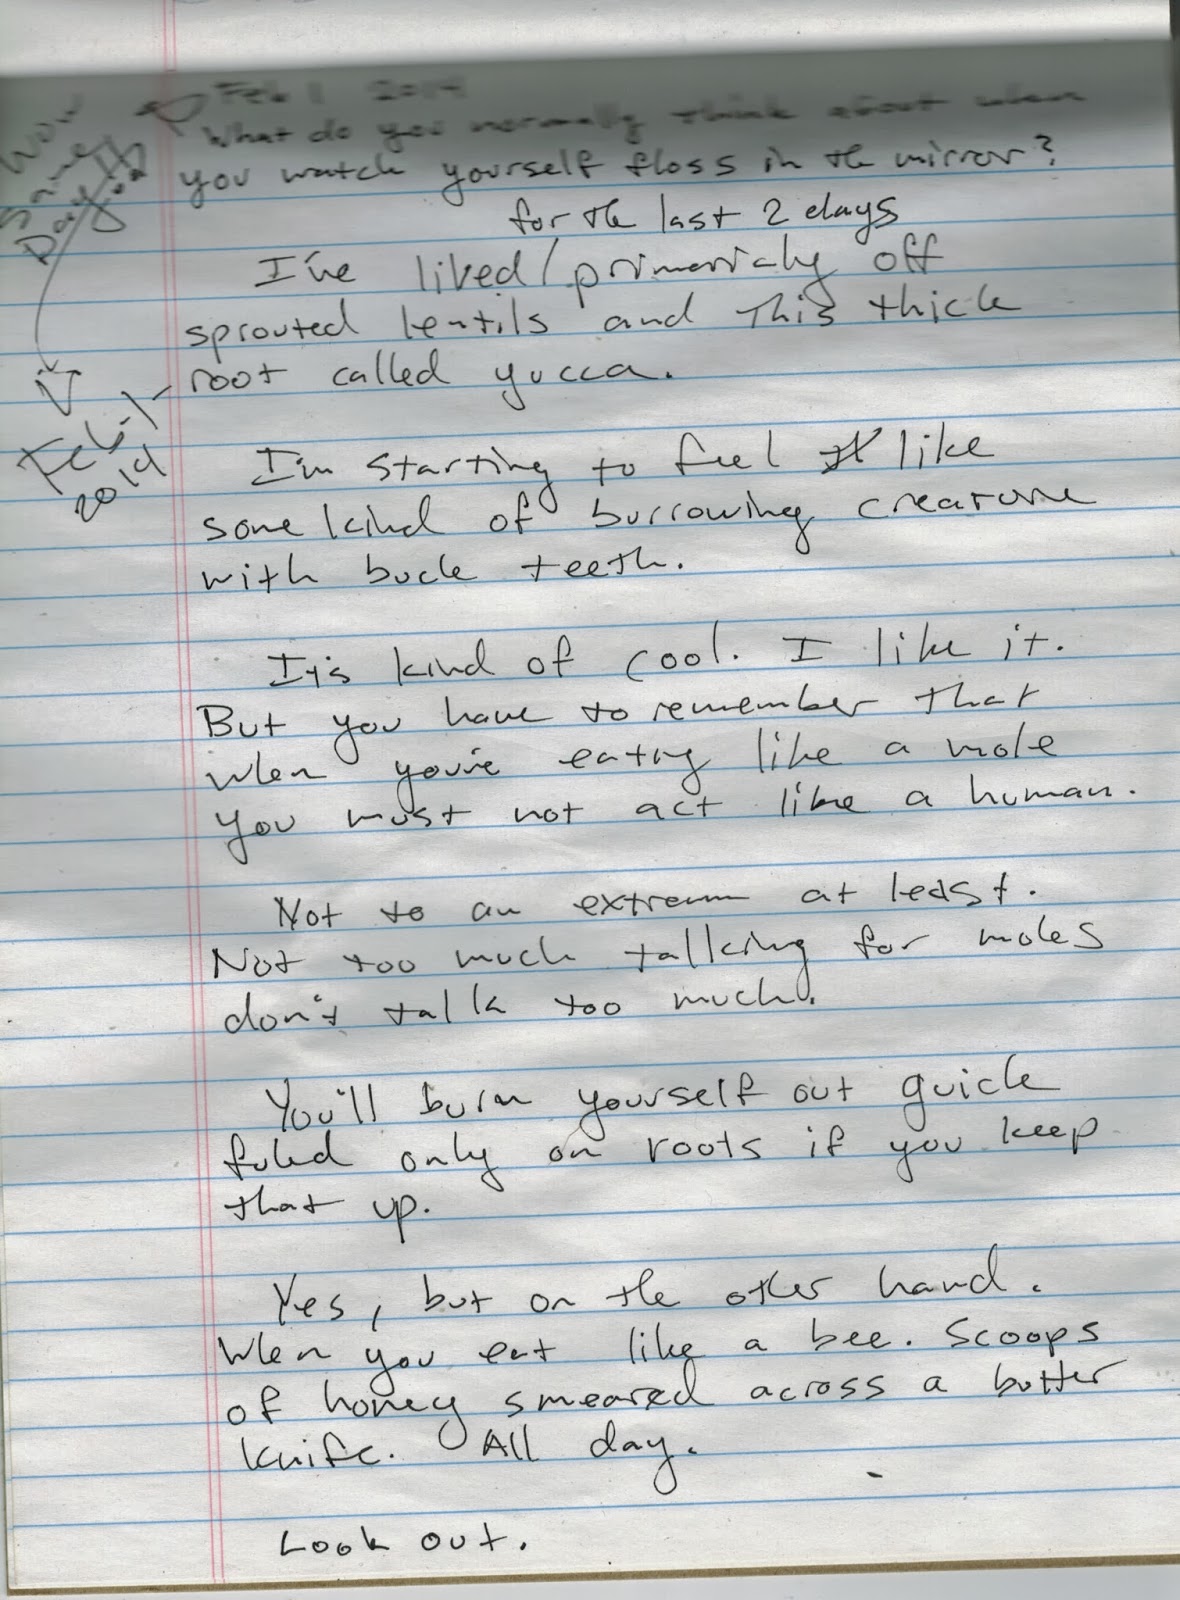 Feb 1 2014
What do you normally think about when
you watch yourself floss in the mirror?
for the last 2 days
I've lived / primarichy off
sprouted lentils and This thick
root called yucca.
Wow
Same
Day
Feb 1
2014
I'm starting to feel like
some kind of burrowing creature
with buck teeth.
It's kind of cool. I like it.
But you have to remember that
when you're eating like a mole
you must not act like a human.
Not to an extreme at least.
Not too much talking for moles
don't talk too much.
You'll burn yourself out quick
fuled only on roots if you keep
that up.
Yes, but on the other hand.
When you eat like a bee. Scoops
of honey smeared across a butter
knife. All day.
Look out.